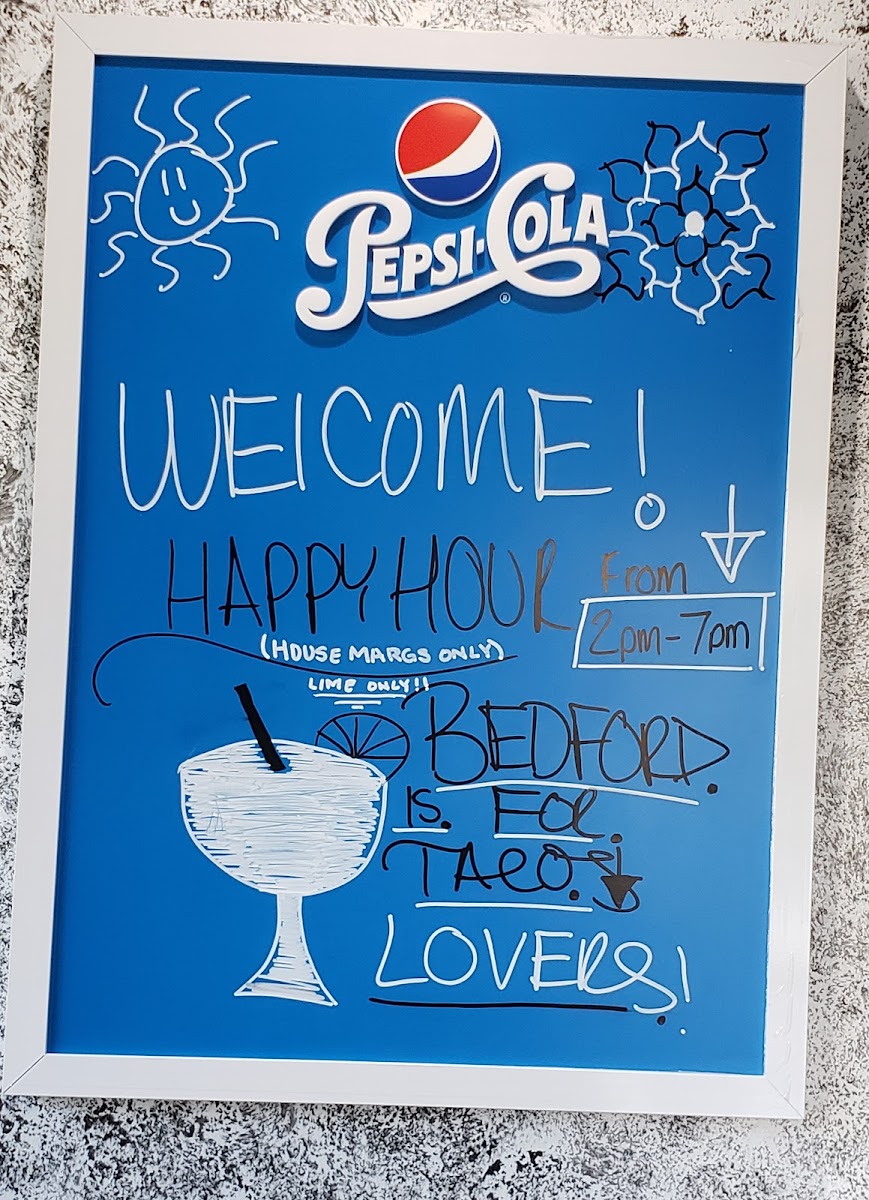 PEPSI-COLA
®
WELCOME!
HAPPY HOUR From
2pm-7pm
(HOUSE MARGS ONLY)
LIME ONLY!!
BEDFORD.
IS. FOR.
TACO.S
LOVERS!